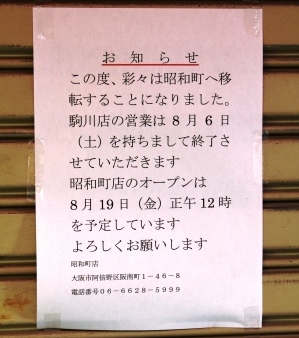 お知らせ
この度、彩々は昭和町へ移
転することになりました。
駒川店の営業は８月６日
（土）を持ちまして終了さ
せていただきます
昭和町店のオープンは
８月19日（金）正午12時
を予定しています
よろしくお願いします
昭和町店
大阪市阿倍野区阪南町１－４６－８
電話番号０６－６６２８－５９９９